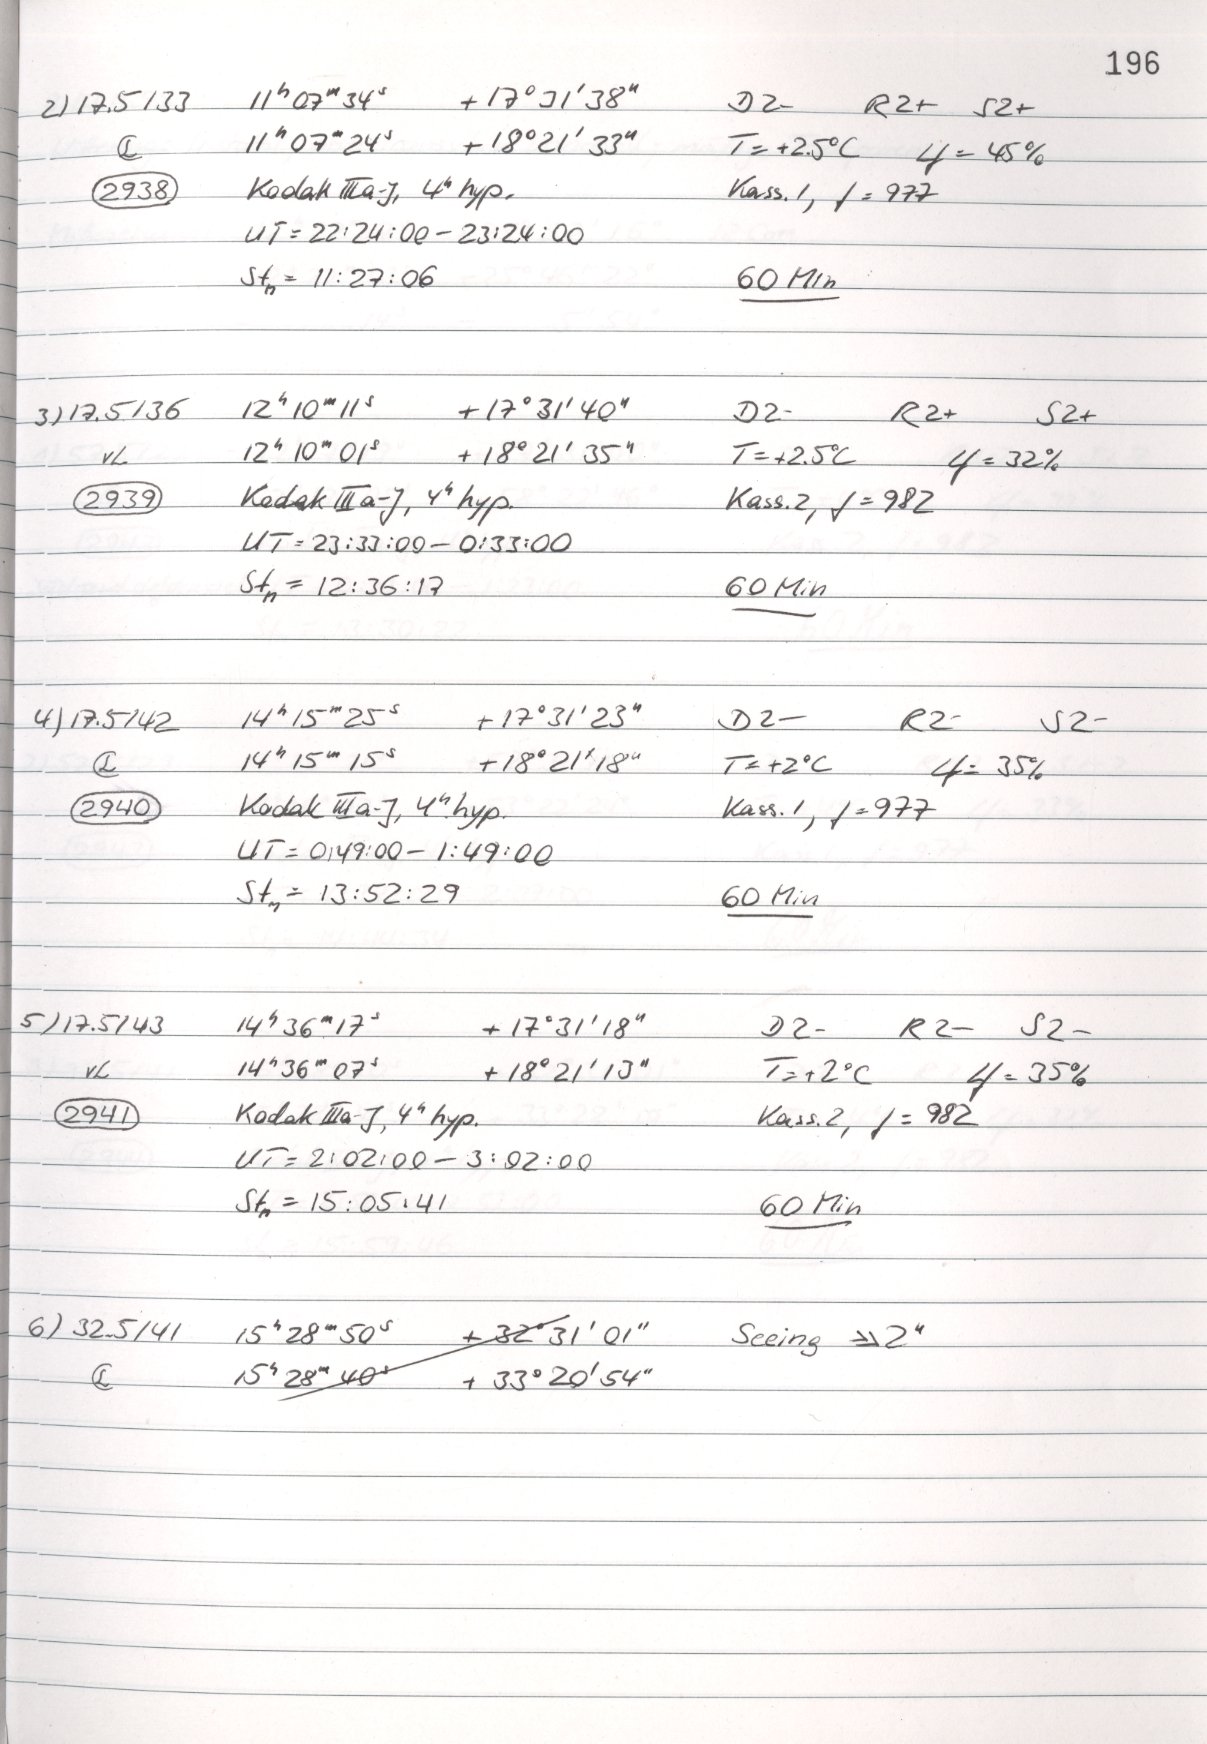 196
2) 17.5/133 11ʰ07ᵐ34ˢ +17°31'38" D2- R2+ S2+
11ʰ07ᵐ24ˢ +18°21'33" T=+2.5°C φ=45%
2938 Kodak IIIa-J, 4ʰ hyp. Kass.1, f=977
UT=22:24:00-23:24:00
Stₙ=11:27:06 60 Min
3) 17.5/136 12ʰ10ᵐ11ˢ +17°31'40" D2- R2+ S2+
vL 12ʰ10ᵐ01ˢ +18°21'35" T=+2.5°C φ=32%
2939 Kodak IIIa-J, 4ʰ hyp. Kass.2, f=982
UT=23:33:00-0:33:00
Stₙ=12:36:17 60 Min
4) 17.5/42 14ʰ15ᵐ25ˢ +17°31'23" D2- R2- S2-
14ʰ15ᵐ15ˢ +18°21'18" T=+2°C φ=35%
2940 Kodak IIIa-J, 4ʰ hyp. Kass.1, f=977
UT=0:49:00-1:49:00
Stₙ=13:52:29 60 Min
5) 17.5/43 14ʰ36ᵐ17ˢ +17°31'18" D2- R2- S2-
vL 14ʰ36ᵐ07ˢ +18°21'13" T=+2°C φ=35%
2941 Kodak IIIa-J, 4ʰ hyp. Kass.2, f=982
UT=2:02:00-3:02:00
Stₙ=15:05:41 60 Min
6) 32.5/41 15ʰ28ᵐ50ˢ +32°31'01" Seeing ≫2"
15ʰ28ᵐ40ˢ +33°20'54"